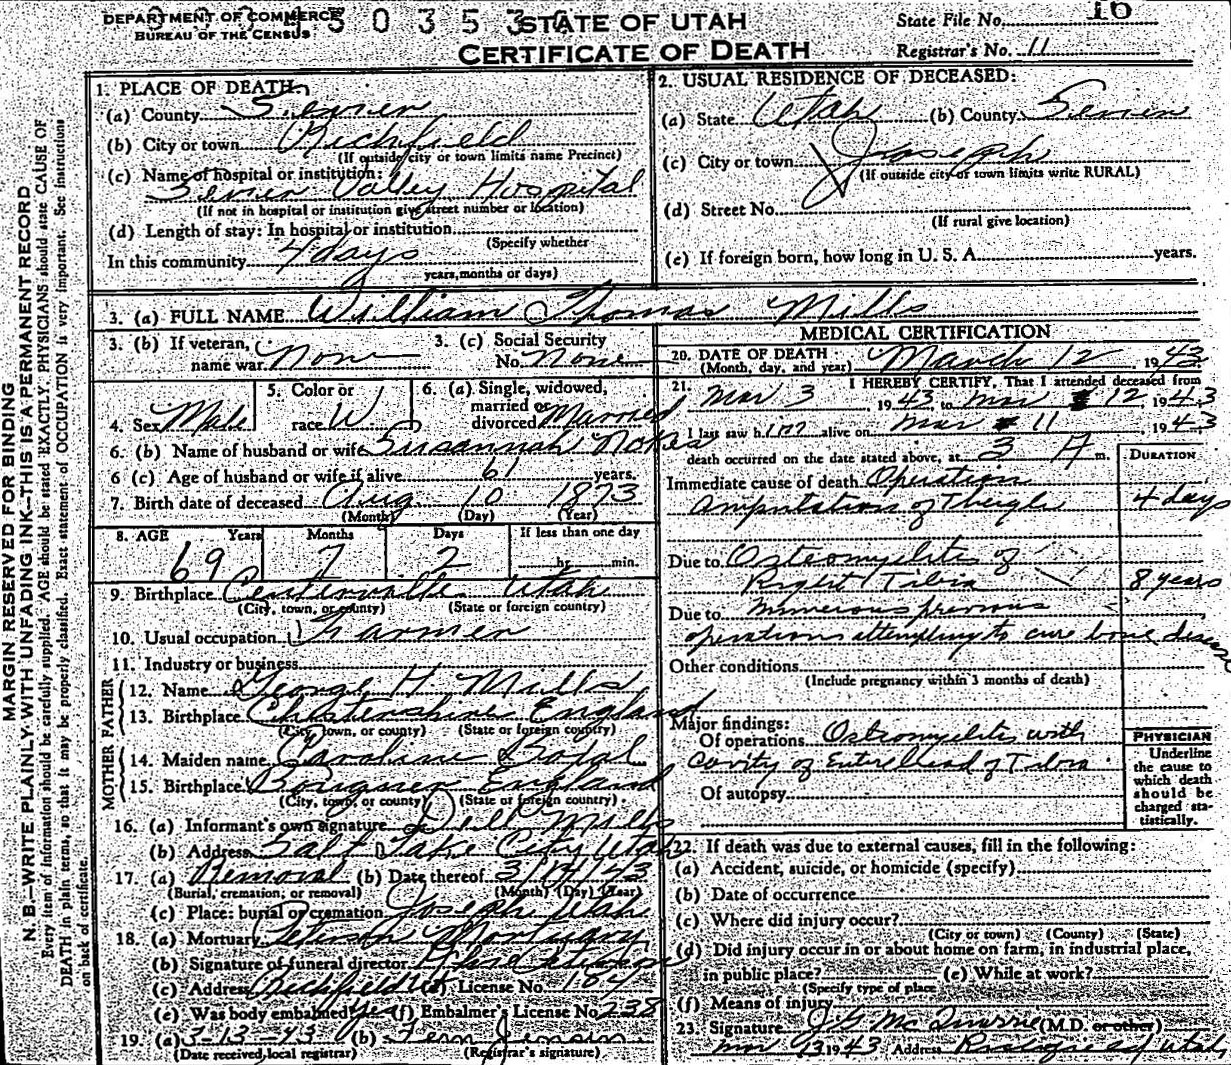 DEPARTMENT OF COMMERCE
BUREAU OF THE CENSUS
STATE OF UTAH
CERTIFICATE OF DEATH
State File No. 16
Registrar's No. 11
MARGIN RESERVED FOR BINDING
N. B.—WRITE PLAINLY WITH UNFADING INK—THIS IS A PERMANENT RECORD
Every item of information should be carefully supplied. AGE should be stated EXACTLY. PHYSICIANS should state CAUSE OF
DEATH in plain terms, so that it may be properly classified. Exact statement of OCCUPATION is very important. See instructions
on back of certificate.
1. PLACE OF DEATH
(a) County Sevier
(b) City or town Richfield
(If outside city or town limits name Precinct)
(c) Name of hospital or institution:
Sevier Valley Hospital
(If not in hospital or institution give street number or location)
(d) Length of stay: In hospital or institution
(Specify whether
In this community 4 days
years, months or days)
2. USUAL RESIDENCE OF DECEASED:
(a) State Utah (b) County Sevier
(c) City or town Joseph
(If outside city or town limits write RURAL)
(d) Street No.
(If rural give location)
(e) If foreign born, how long in U. S. A. years.
3. (a) FULL NAME William Thomas Mills
3. (b) If veteran, name war None
3. (c) Social Security No. None
4. Sex Male
5. Color or race W
6. (a) Single, widowed, married or divorced Married
6. (b) Name of husband or wife Susannah Nokes
6 (c) Age of husband or wife if alive 61 years.
7. Birth date of deceased Aug 10 1873
(Month) (Day) (Year)
8. AGE Years Months Days If less than one day
69 7 2 hr. min.
9. Birthplace Centerville Utah
(City, town, or county) (State or foreign country)
10. Usual occupation Farmer
11. Industry or business
FATHER
12. Name George H Mills
13. Birthplace England
(City, town, or county) (State or foreign country)
MOTHER
14. Maiden name Caroline
15. Birthplace England
(City, town, or county) (State or foreign country)
16. (a) Informant's own signature Dell Mills
(b) Address Salt Lake City Utah
17. (a) Removal (b) Date thereof 3/ /43
(Burial, cremation, or removal) (Month) (Day) (Year)
(c) Place: burial or cremation Joseph Utah
18. (a) Mortuary Peterson Mortuary
(b) Signature of funeral director
(c) Address Richfield (d) License No. 164
(e) Was body embalmed? Yes (f) Embalmer's License No. 238
19. (a) 3-13-43 (b) Fern Jensen
(Date received, local registrar) (Registrar's signature)
MEDICAL CERTIFICATION
20. DATE OF DEATH March 12 1943
(Month, day, and year)
21. I HEREBY CERTIFY, That I attended deceased from
Mar 3 1943, to Mar 12 1943
I last saw him alive on Mar 11 1943
death occurred on the date stated above, at 3 A m.
DURATION
Immediate cause of death Operation
Amputation of Thigh 4 days
Due to Osteomyelites of
Right Tibia 8 years
Due to numerous previous
operations attempting to cure bone disease
Other conditions
(Include pregnancy within 3 months of death)
Major findings:
Of operations Osteomyelites with
cavity of Entire Head of Tibia
Of autopsy
PHYSICIAN
Underline
the cause to
which death
should be
charged sta-
tistically.
22. If death was due to external causes, fill in the following:
(a) Accident, suicide, or homicide (specify)
(b) Date of occurrence
(c) Where did injury occur?
(City or town) (County) (State)
(d) Did injury occur in or about home on farm, in industrial place,
in public place? (e) While at work?
(Specify type of place
(f) Means of injury
23. Signature J G McQuarrie (M.D. or other)
Mar 13 1943 Address Utah